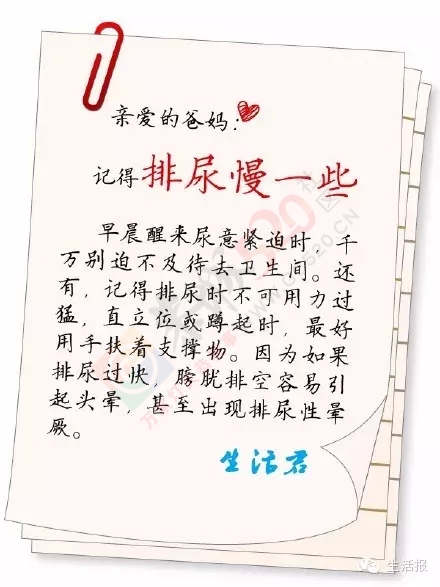 亲爱的爸妈：
记得排尿慢一些
早晨醒来尿意紧迫时，千
万别迫不及待去卫生间。还
有，记得排尿时不可用力过
猛，直立位或蹲起时，最好
用手扶着支撑物。因为如果
排尿过快，膀胱排空容易引
起头晕，甚至出现排尿性晕
厥。
生活君
生活报